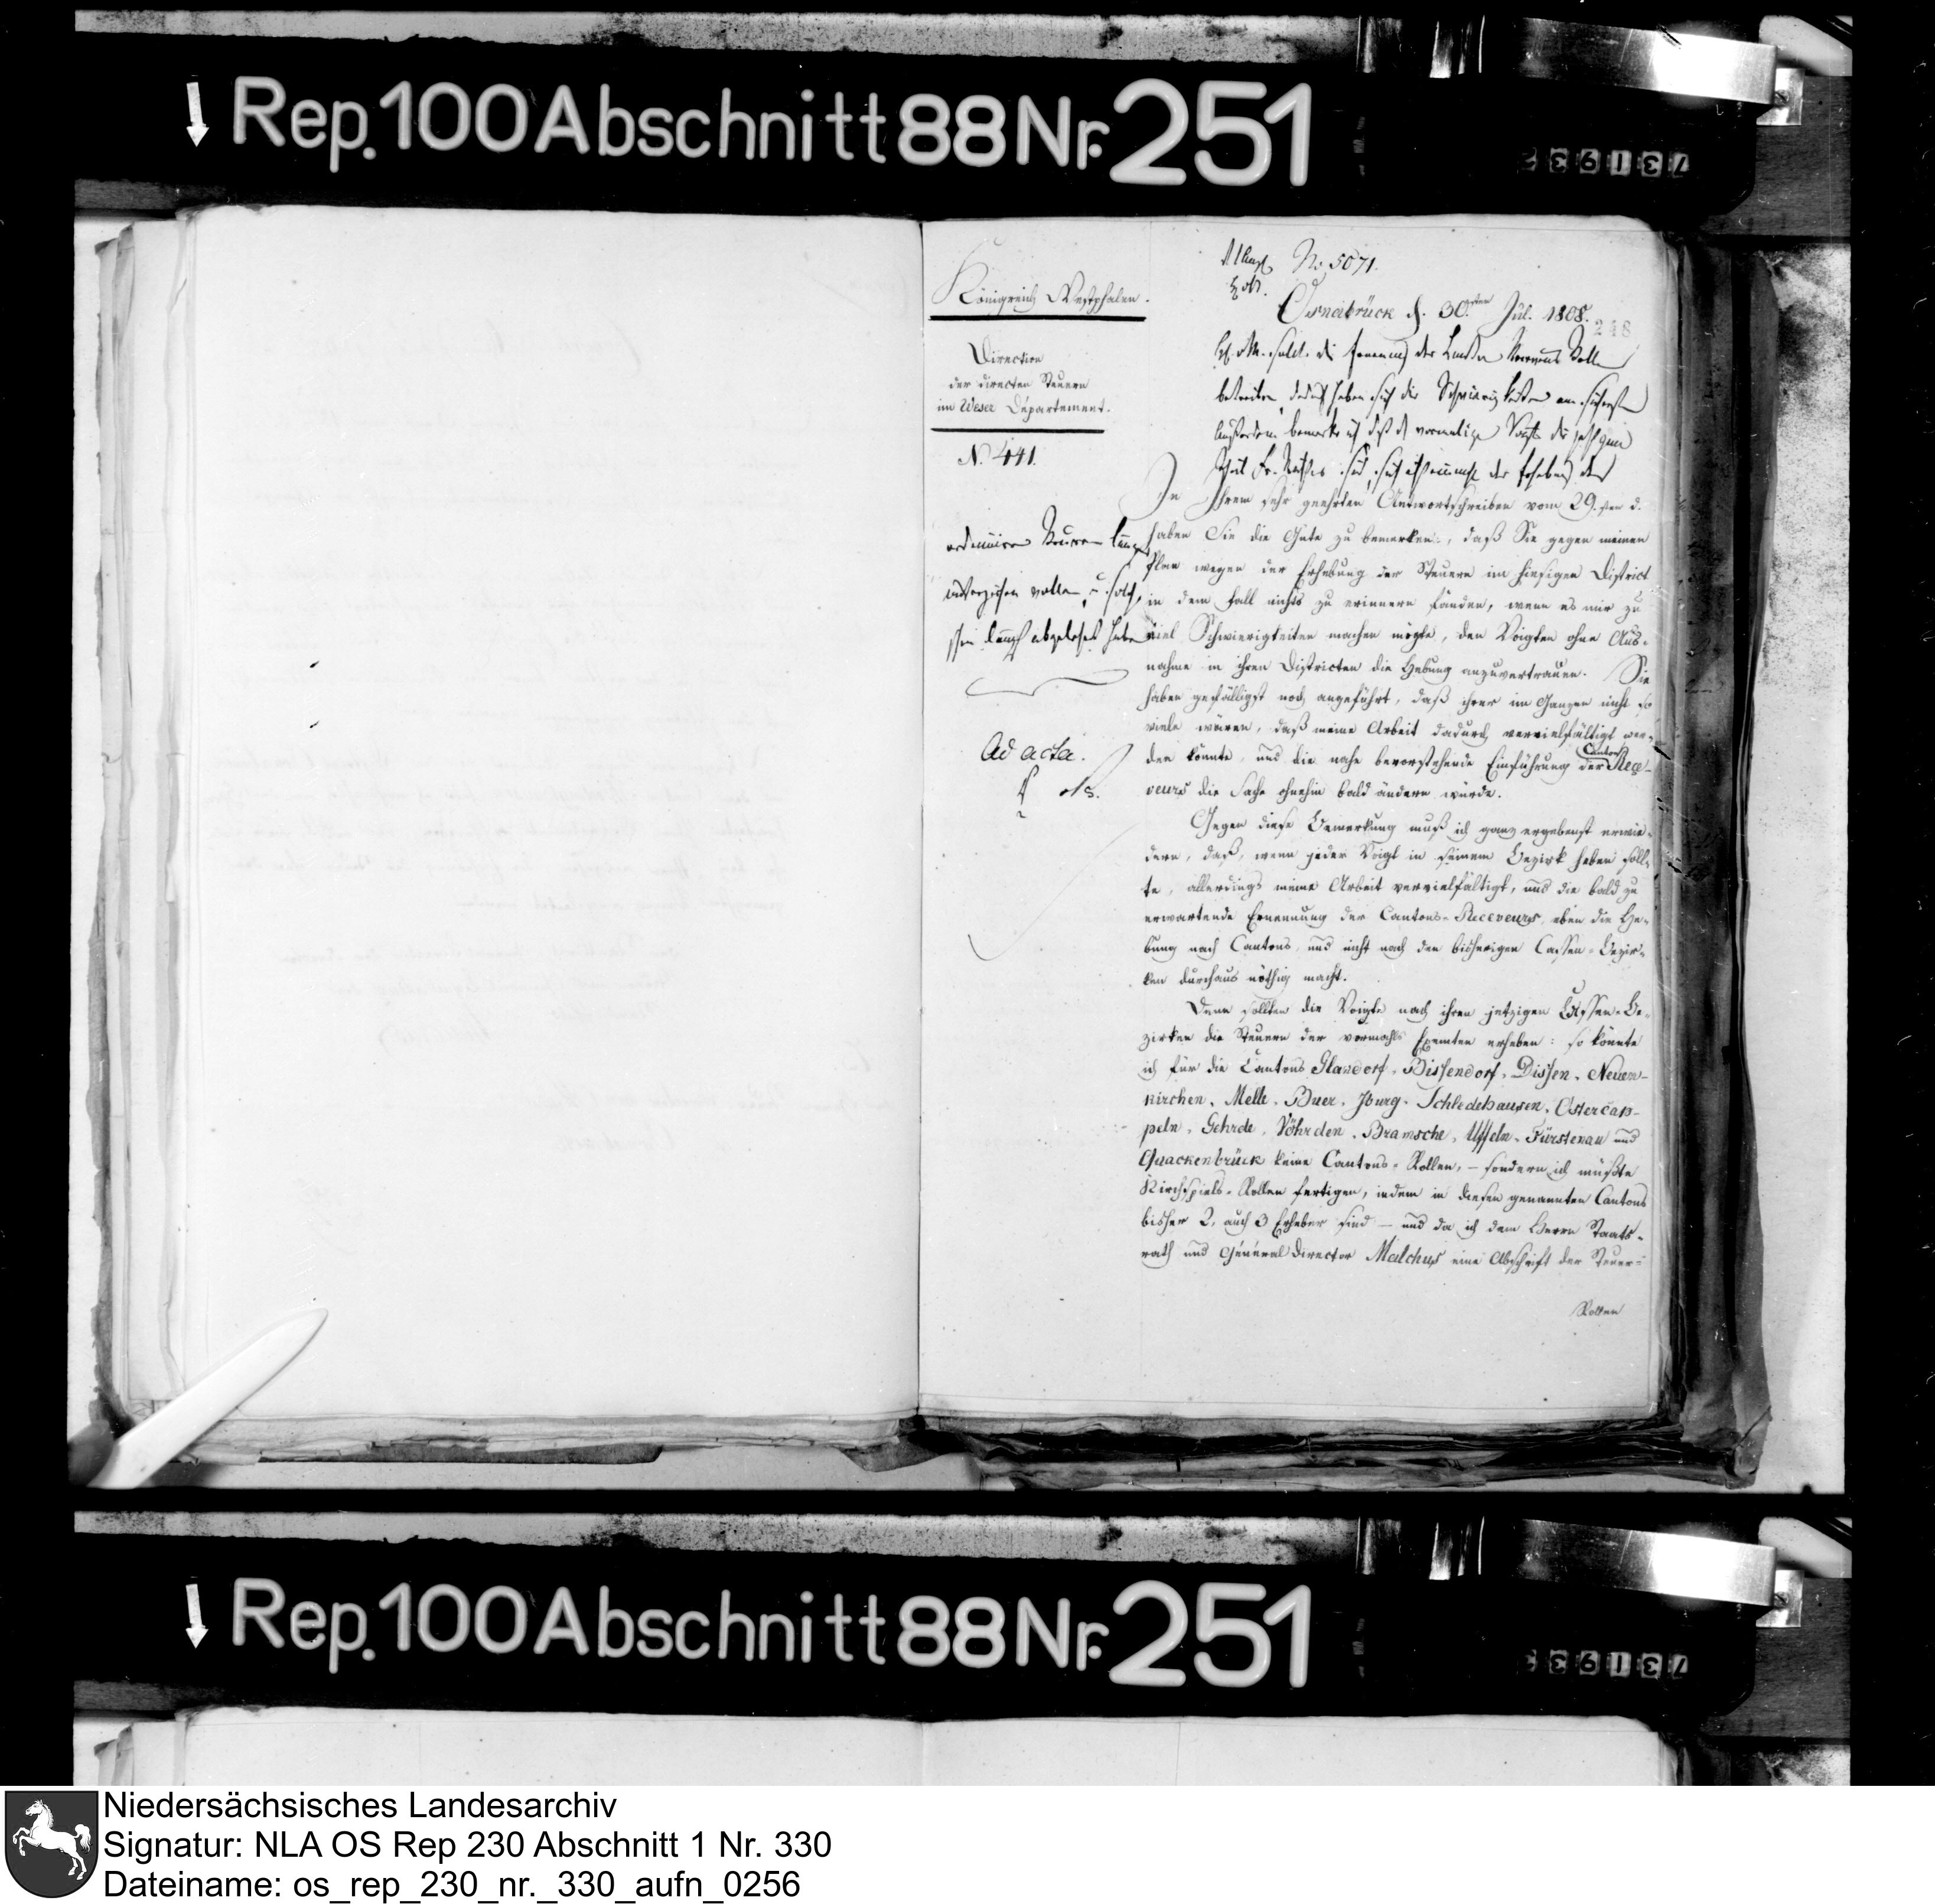 Rep. 100 Abschnitt 88 Nr. 251
731933
No. 5071.
Königreich Westphalen.
Osnabrück d. 30sten Jul. 1808.
248
Direction
der directen Steuern
im Weser Département.
N. 441.
betreiben, haben sich die Schwierigkeiten am
außerdem bemerke ich daß vormalige Vögte die
In Ihrem sehr geehrten Antwortschreiben vom 29. sten d.
haben Sie die Güte zu bemerken, daß Sie gegen meinen
Plan wegen der Erhebung der Steuern im hiesigen District
in dem Fall nichts zu erinnern fänden, wenn es mir zu
viel Schwierigkeiten machen mögte, den Voigten ohne Aus-
nahme in ihren Districten die Hebung anzuvertrauen. Sie
haben gefälligst noch angeführt, daß ihrer im Ganzen nicht so
viele wären, daß meine Arbeit dadurch vervielfältigt wer-
den könnte, und die nahe bevorstehende Einführung der Cantons Rece-
veurs die Sache ohnehin bald ändern würde.
Ad acta.
Gegen diese Bemerkung muß ich ganz ergebenst erwie-
dern, daß, wenn jeder Voigt in seinem Bezirk heben soll-
te, allerdings meine Arbeit vervielfältigt, und die bald zu
erwartende Ernennung der Cantons-Receveurs, eben die He-
bung nach Cantons, und nicht nach den bisherigen Cassen-Bezir-
ken durchaus nöthig macht.
Denn sollten die Voigte nach ihren jetzigen Cassen-Be-
zirken die Steuern der vormahls Exemten erheben: so könnte
ich für die Cantons Glandorf, Bissendorf, Dissen, Neuen-
kirchen, Melle, Buer, Jburg, Schledehausen, Ostercap-
peln, Gehrde, Vöhrden, Bramsche, Uffeln, Fürstenau und
Quackenbrück keine Cantons-Rollen, – sondern ich müßte
Kirchspiels-Rollen fertigen, indem in diesen genannten Cantons
bisher 2, auch 3 Erheber sind – und da ich dem Herrn Staats-
rath und Généraldirector Malchus eine Abschrift der Steuer-
Rollen
Rep. 100 Abschnitt 88 Nr. 251
731933
Niedersächsisches Landesarchiv
Signatur: NLA OS Rep 230 Abschnitt 1 Nr. 330
Dateiname: os_rep_230_nr._330_aufn_0256